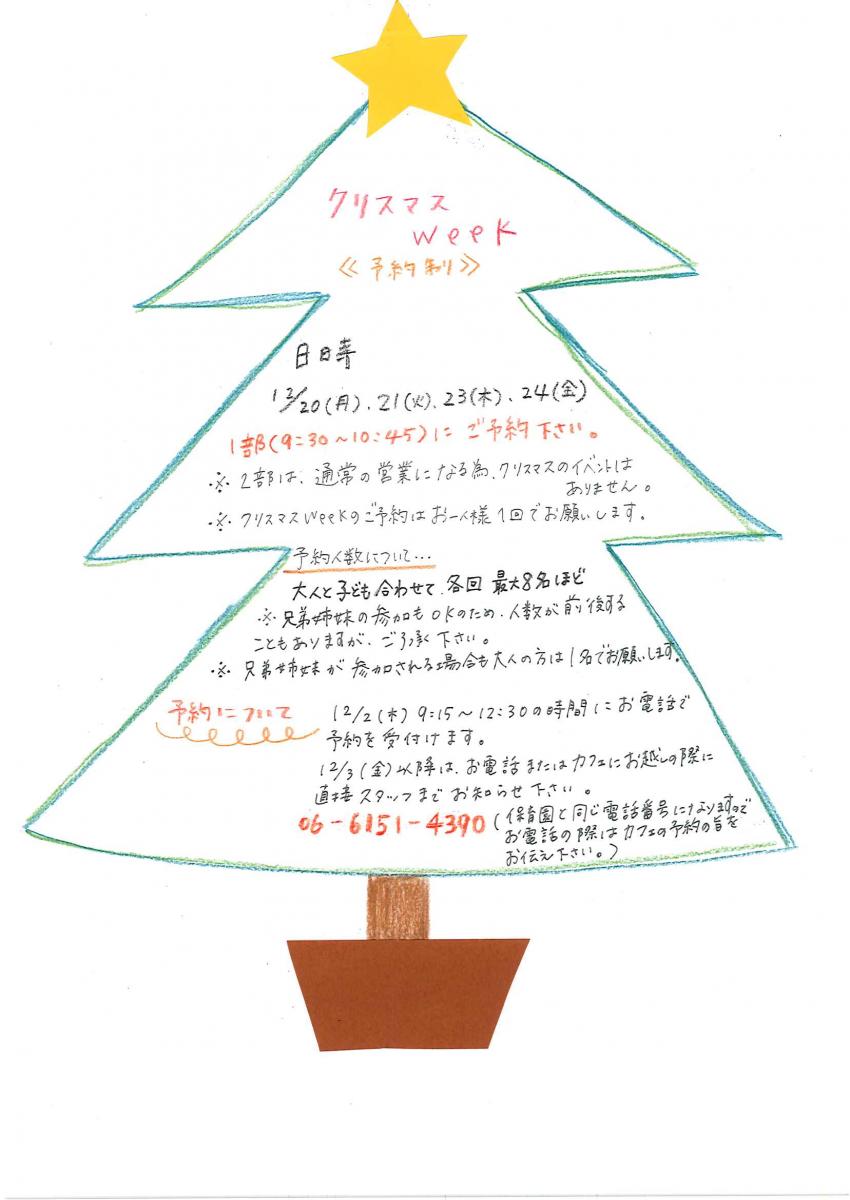 クリスマス
week
≪予約制≫
日時
12/20(月)、21(火)、23(木)、24(金)
1部(9:30～10:45)に ご予約下さい。
※ 2部は、通常の営業になる為、クリスマスのイベントは
ありません。
※ クリスマスweekのご予約はお一人様1回でお願いします。
予約人数について…
大人と子ども合わせて、各回 最大8名ほど
※ 兄弟姉妹の参加もOKのため、人数が前後する
こともありますが、ご了承下さい。
※ 兄弟姉妹が参加される場合も大人の方は1名でお願いします。
予約について
12/2(木) 9:15～12:30の時間にお電話で
予約を受付けます。
12/3(金)以降は、お電話またはカフェにお越しの際に
直接スタッフまでお知らせ下さい。
06-6151-4390
(保育園と同じ電話番号になりますので
お電話の際はカフェの予約の旨を
お伝え下さい。)